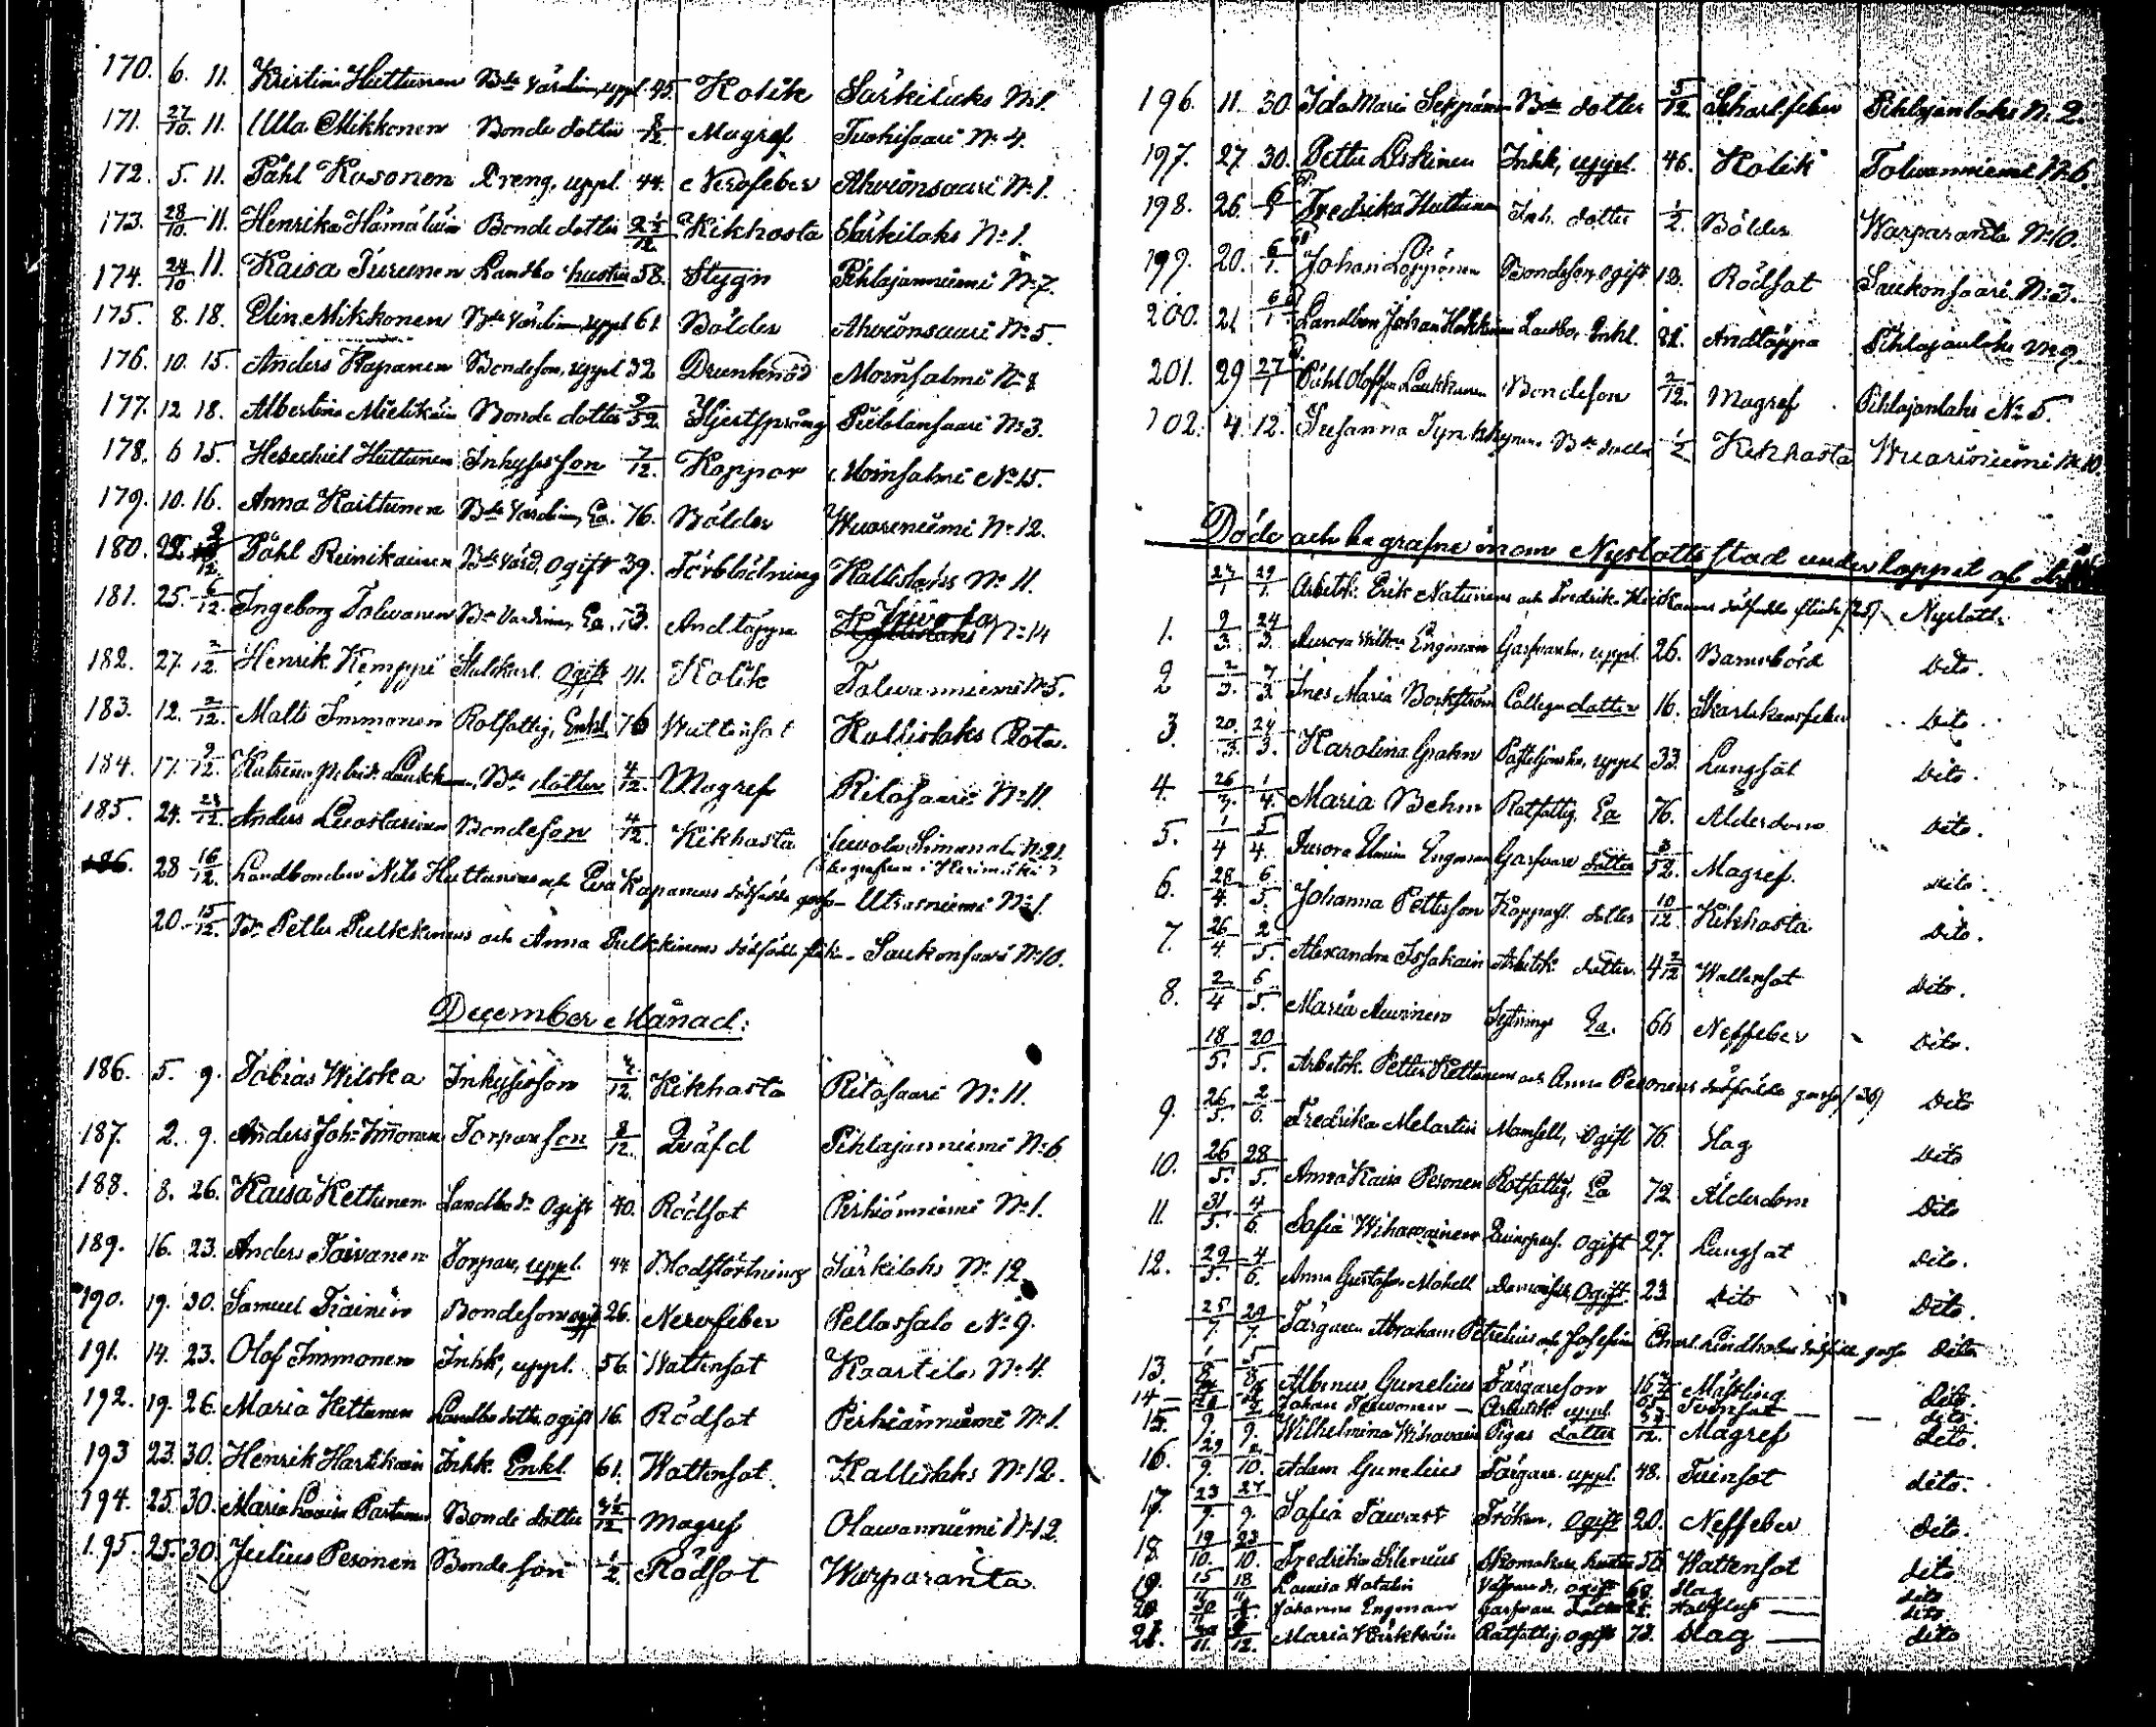 170. 6. 11. Kristina Huttunen Bde Värdinna, uppl. 45. Kolik Särkilaks No 1.
171. 27/10. 11. Ulla Mikkonen Bonde dotter 8/12. Magref Tuohisaari No 4.
172. 5. 11. Påhl Kosonen Dreng, uppl. 44. Nervfeber Ahvionsaari No 1.
173. 28/10. 11. Henrika Hämäläin Bonde dotter Kikhosta Särkilaks No 1.
174. 24/10 11. Kaisa Turunen Landbo hustru 58. Stygn Pihlajanniemi No 7.
175. 8. 18. Elin Mikkonen Bde Värdinna, uppl. 61. Bölder Ahvionsaari No 5.
176. 10. 15. Anders Kapanen Bondeson, uppl. 32 Drunknad Moinsalmi No 8
177. 12 18. Albertina Mielikäin Bonde dotter 9/52 Hjertsprång Pietolansaari No 3.
178. 6 15. Hesechiel Huttunen Inhyses son 7/12. Koppor Moinsalmi No 15.
179. 10. 16. Anna Kaittunen Bde Värdinna, Ea. 76. Bölder Wuoreniemi No 12.
180. 22. 9/12 Påhl Reinikainen Bde Värd, Ogift 39. Förblödning Kallislaks No 11.
181. 25. 6/12. Ingeborg Tolwanen Bde Värdinna, Ea. 73. Andtäppa No 14
182. 27. 2/12. Henrik Kemppi Stallkarl. Ogift 41. Kolik Tolwanniemi No 5.
183. 12. 2/12. Matts Immonen Rotfattig, Enkl. 76 Wattensot Kallislaks Rota.
184. 17. 9/12. Katrina Petrsdr. Laukkanen, Bde dotter 4/12. Magref Ritosaari No 11.
185. 24. 23/12. Anders Luostarinen Bondeson 4/12. Kikhosta Simanala No 21.
(begrafven i Kerimäki)
186. 28 16/12. Landbonden Nils Huttunens och Eva Kapanens dödfödde gosse – Utrasniemi No 1.
20. 15/12. Bd. Petter Pulkkinens och Anna Pulkkinens dödfödde flicka – Saukonsaari No 10.
December Månad:
186. 5. 9. Tobias Wilska Inhyses son 12. Kikhosta Ritosaari No 11.
187. 2. 9. Anders Joh: Immonen Torpareson 8/12. Qväfd Pihlajanniemi No 6
188. 8. 26. Kaisa Kettunen Landbo dr. Ogift 40. Rödsot Pirhiänniemi No 1.
189. 16. 23. Anders Toivanen Torpare, uppl. 44 Blodstörtning Särkilaks No 12
190. 19. 30. Samuel Kainen Bondeson ogift 26. Nervfeber Pellossalo No 9.
191. 14. 23. Olof Immonen Inhk, uppl. 56. Wattensot Kaartila No 4.
192. 19. 26. Maria Kettunen Landbo dotter, ogift 16. Rödsot Pirhiänniemi No 1.
193 23. 30. Henrik Hartikain Inhk. Enkl. 61. Wattensot Kallislaks No 12.
194. 25. 30. Maria Lovisa Partanen Bonde dotter Magref Olawanniemi No 12.
195. 25. 30. Julius Pesonen Bondeson 1/2. Rödsot Warparanta
196. 11. 30. Ida Maria Seppänen Bde dotter 5/12. Scharl.feber Pihlajanlaks No 2.
197. 27. 30. Petter Liskinen Inhk, uppl. 46. Kolik Tolwanniemi No 6.
198. 26. 6/1 Fredrika Huttunen Inh. dotter 1/2. Bölder Warparanta No 10.
199. 20. 6/1. Johan Loppönen Bondeson, ogift 18. Rödsot Saukonsaari No 3.
200. 21 6/1 Landbon Johan Landbo, Enkl. 81. Andtäppa Pihlajanlaks No 9.
201. 29 27/1 Påhl Olofsson Laukkanen Bondeson 2/12. Magref Pihlajanlaks No 5.
202. 4. 12. Susanna Tynkkynen Bde dotter 1/2 Kikhosta Wuoriniemi No 10.
Döde och begrafne inom Nyslotts stad under loppet af
27/1 29/1. Arbetsk. Erik Natunens och Fredrika Heiskanens dödfödde flicka (25) – Nyslott.
1. 9/3. 24/3. Aurora Engman Garfvareh., uppl. 26. Barnsbörd Dito.
2 2/3. 7/3. Ines Maria Borkström Collega dotter 16. Skarlakansfeber Dito.
3. 20/3. 24/3. Karolina Grahn uppl. 33. Lungsot Dito.
4. 26/3. 1/4. Maria Behm Rotfattig, Ea 76. Ålderdom Dito.
5. 1/4 5/4. Aurora Engman Garfvare dotter 3/52. Magref. Dito.
6. 28/4. 6/5. Johanna Pettersson dotter 10/12. Kikhosta Dito.
7. 26/4 2/5. Alexandra Issakain Arbetsk. dotter 4 2/12 Wattensot Dito.
8. 2/4 6/5. Maria Auvinen Sytnings Ea. 66 Nerffeber Dito.
18/5. 20/5. Arbetsk. Petter Kettunens och Anna Pesonens dödfödde gosse (36) Dito
9. 26/5. 2/6. Fredrika Melartin Mamsell, Ogift 76. Slag Dito
10. 26/5. 28/5. Anna Kaisa Pesonen Rotfattig, Ea 72. Ålderdom Dito
11. 31/5. 4/6. Sofia Wihavainen ogift 27. Lungsot Dito.
12. 29/5. 4/6. Anna Gustafva Mobell Demoiselle, Ogift 23 Dito Dito.
25/7. 29/7. Färgaren Abraham Petrelius och Josefina Charl. Lindholms dödfödde gosse Dito
13. Albinus Gunelius Färgareson Mässling Dito.
14 — Johan Toivonen — Arbetsk. uppl. — Dito.
15. Wilhelmina Wihavain Pigas dotter Magref Dito.
16. 29/9. 2/10. Adam Gunelius Färgare. uppl. 48. Tvinsot Dito.
17. 23/9. 27/9. Sofia Tawast Fröken, Ogift 20. Nerffeber Dito.
18. 19/10. 23/10. Fredrika Skomakare hustru 50. Wattensot Dito
19. 15/11 18/11. Lovisa Hatalin ogift 68. Slag Dito
20 Johanna Engman Garfvare dotter — Dito.
21. 30/11. Maria Rotfattig, ogift 73. Slag — Dito